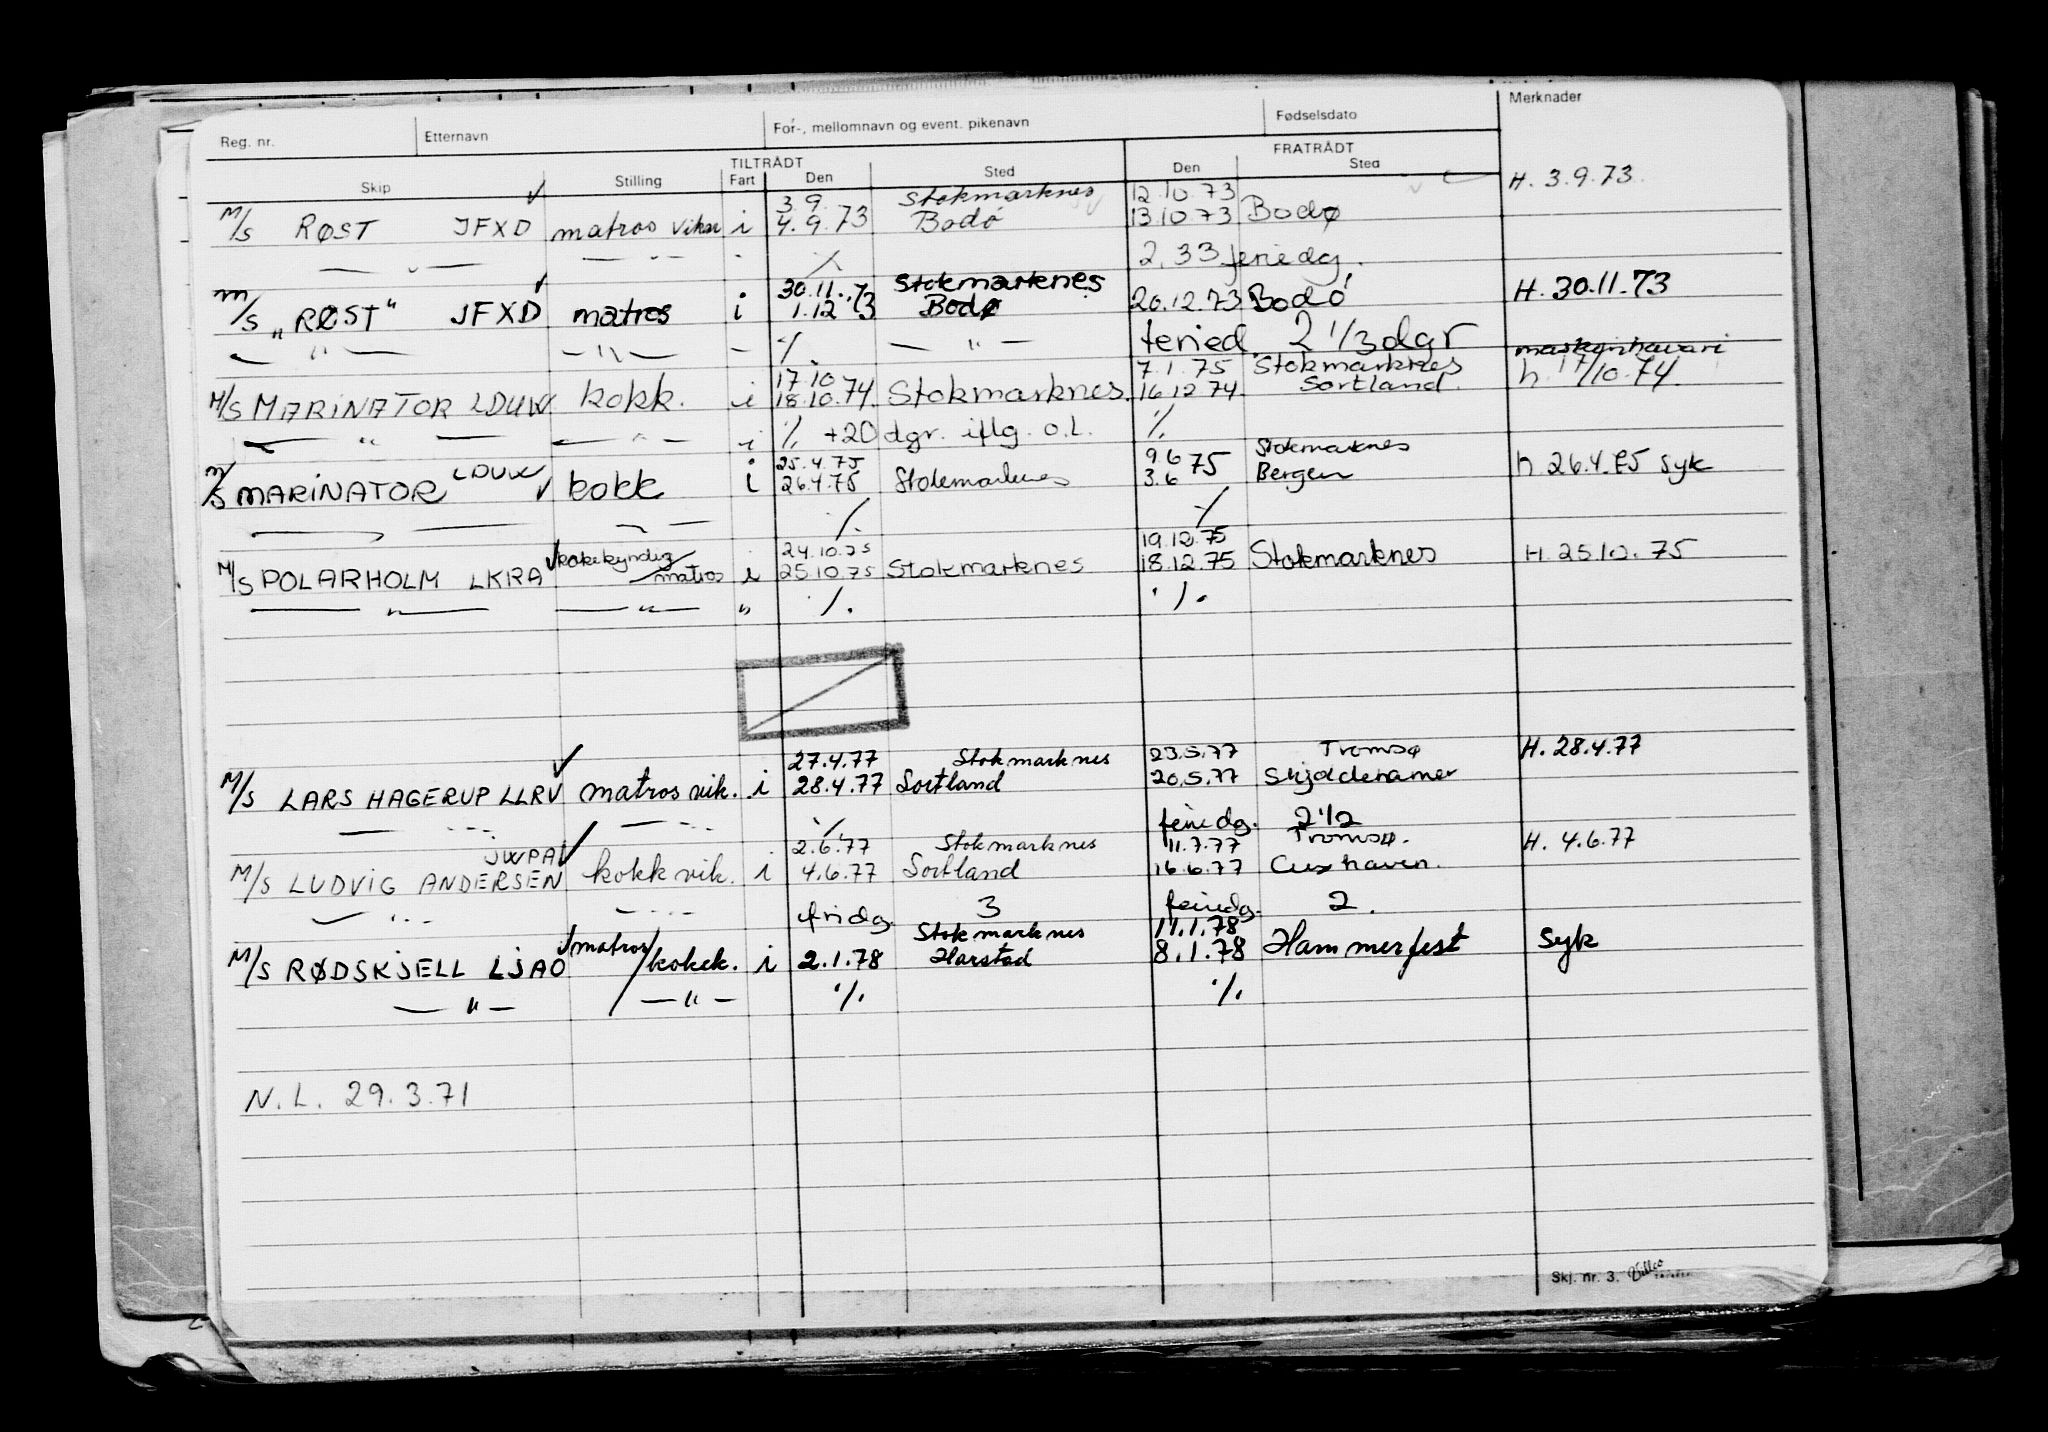 Reg. nr. Etternavn For-, mellomnavn og event. pikenavn Fødselsdato Merknader
TILTRÅDT FRATRÅDT
Skip Stilling Fart Den Sted Den Sted
3.9. Stokmarknes 12.10.73 H. 3.9.73
M/S RØST JFXD matros i 4.9.73 Bodø 13.10.73 Bodø
— " — — " — ./. 2,33 feriedg.
30.11.73 Stokmarknes H. 30.11.73
m/s „RØST" JFXD matros i 1.12 73 Bodø 20.12.73 Bodø
— " — — " — — ./. — " — feried. 2 1/3 dgr
maskinhavari
17.10 7.1.75 Stokmarknes h. 17/10.74
M/S MARINATOR LDUW kokk. i 18.10.74. Stokmarknes. 16.12 74. Sortland.
— " — — " — i ./. +20 dgr. iflg. o.l. ./.
25.4.75 9 6 75 Stokmarknes
m/s MARINATOR LDUW kokk i 26.4.75 Stokmarknes 3.6 Bergen h 26.4.75 Syk
— — — — ./. ./.
kokekyndig 24.10.75 19.12.75
M/S POLARHOLM LKRA /matros i 25.10.75 Stokmarknes 18.12.75 Stokmarknes H. 25.10.75
— " — — " — " ./. ./.
27.4.77 Stokmarknes 23.5.77 Tromsø H. 28.4.77
M/S LARS HAGERUP LLRV matros vik. i 28.4.77 Sortland 20.5.77 Skjoldehamer
— " — — " — ./. feriedg. 2 1/2
JWPA 2.6.77 Stokmarknes 11.7.77 Tromsø. H. 4.6.77
M/S LUDVIG ANDERSEN kokk vik. i 4.6.77 Sortland 16.6.77 Cuxhaven.
— " — — " — fridg. 3 feriedg. 2.
matros Stokmarknes 11.1.78
M/S RØDSKJELL LJAO /kokk. i 2.1.78 Harstad 8.1.78 Hammerfest Syk
— " — — " — ./. ./.
N.L. 29.3.71
Skj. nr. 3.